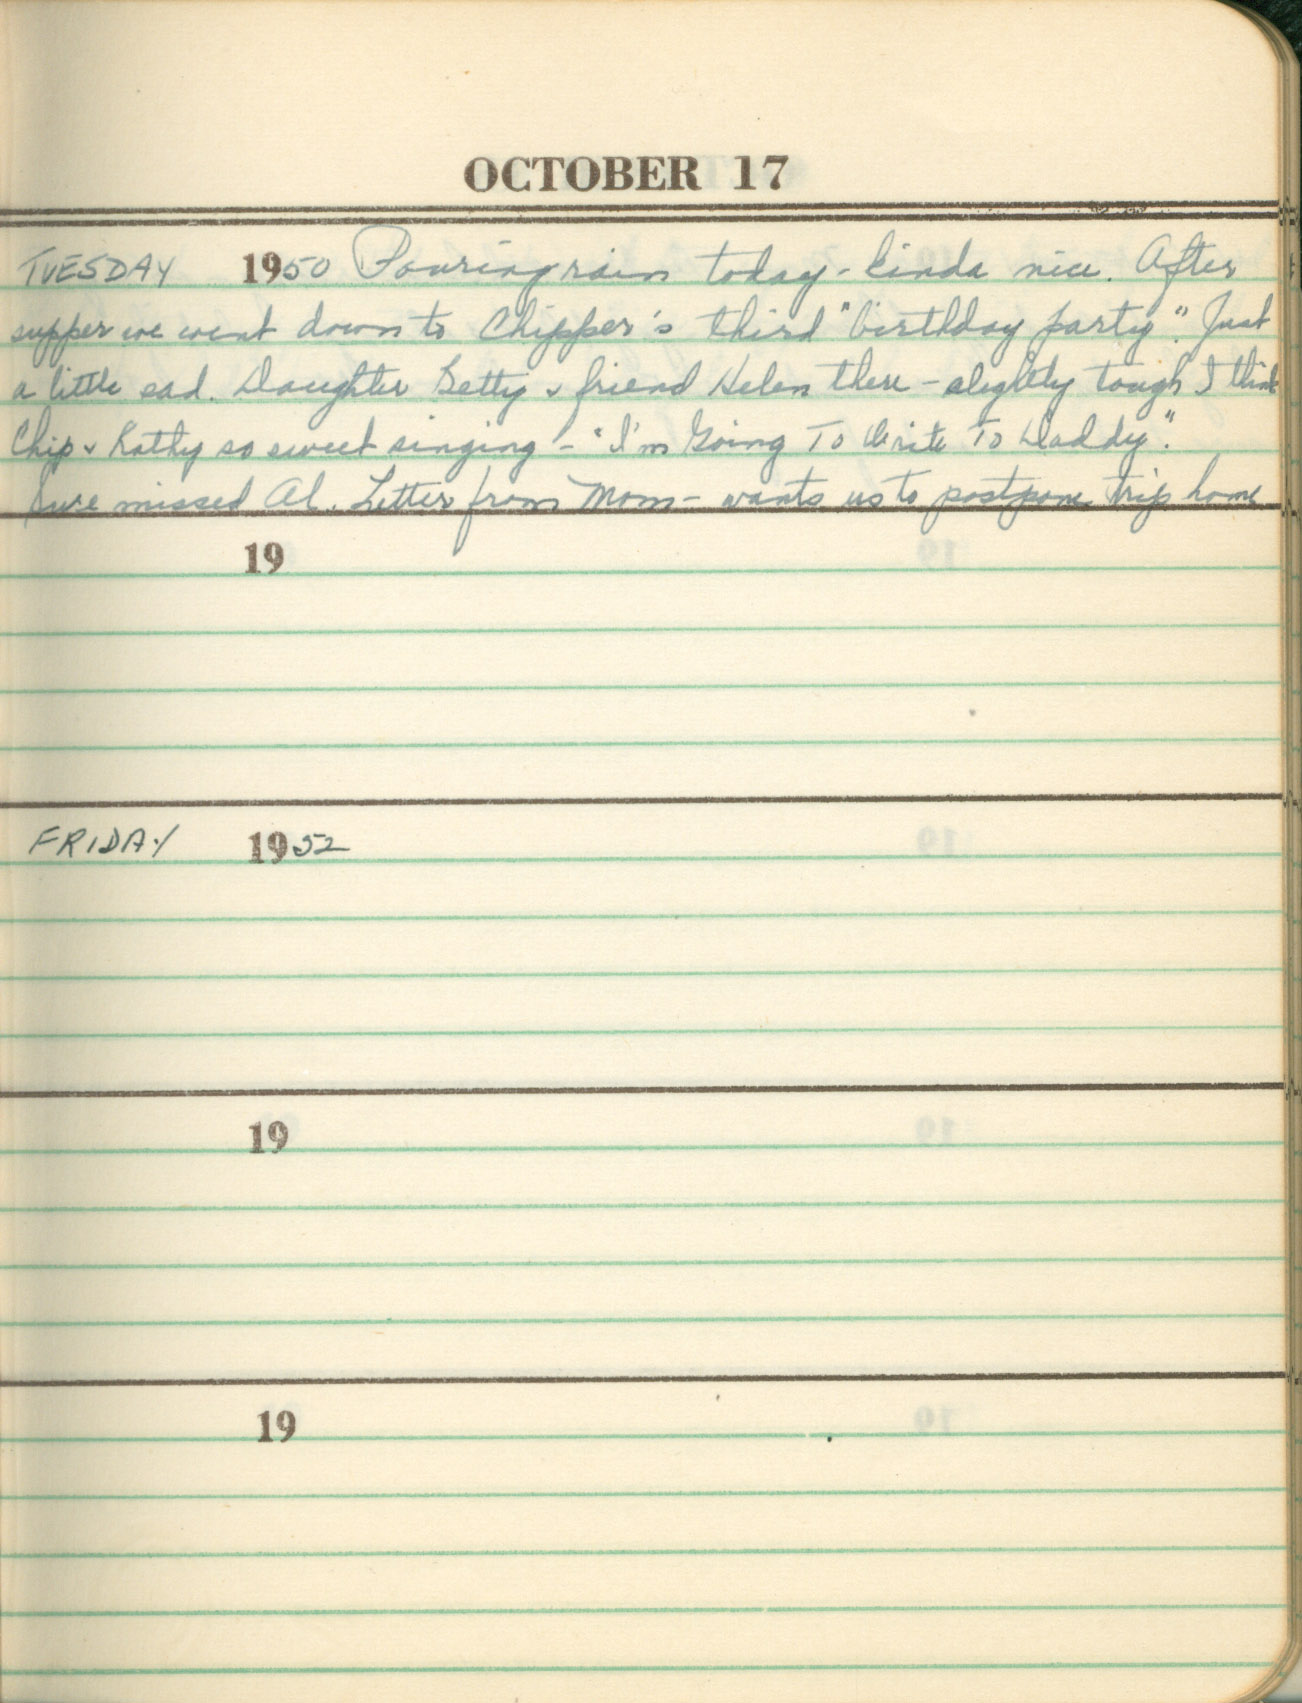 OCTOBER 17
TUESDAY 1950 Pouring rain today - kinda nice. After
supper we went down to Chipper's third "birthday party". Just
a little sad. Daughter Betty & friend Helen there - slightly tough I think
Chip & Kathy so sweet singing - "I'm Going To Write To Daddy".
Sure missed Al. Letter from Mom - wants us to postpone trip home
19
FRIDAY 1952
19
19